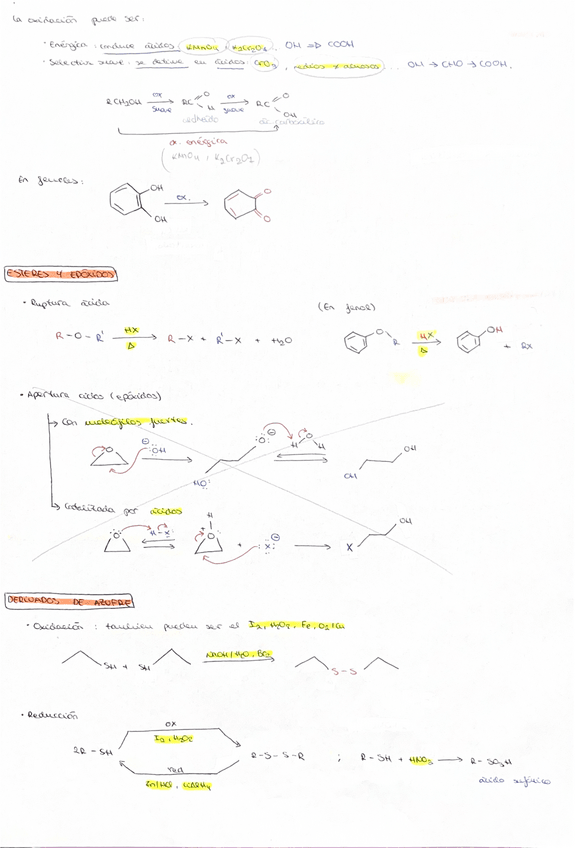 La oxidación puede ser:
· Enérgica: conduce ácidos (KMnO4, K2Cr2O7) OH ⇒ COOH
· Selectiva suave: se detiene en CrO3, medios ... OH → CHO → COOH.
RCH2OH ox suave → RC O H ox suave → RC O OH
aldehído ác. carboxílico
ox. enérgica
(KMnO4, K2Cr2O7)
En fenoles:
OH OH ox. → O O
ESTERES Y EPÓXIDOS
· Ruptura ácida (En fenol)
R-O-R' HX Δ → R-X + R'-X + H2O O R HX Δ → OH + RX
· Apertura ciclos (epóxidos)
→ Con nucleófilos fuertes.
O ⊖:OH → HO: :O:⊖ H O H ⇌ OH OH
→ Catalizada por ácidos
:O: H-X: ⇌ H O + + :X:⊖ → X OH
DERIVADOS DE AZUFRE
· Oxidación: también pueden ser el I2, H2O2, Fe, O2/Cu
SH + SH NaOH/H2O, Br2 → S-S
· Reducción
ox
I2, H2O2
2R-SH R-S-S-R ; R-SH + HNO3 → R-SO3H
red ácido sulfónico
Zn/HCl, LiAlH4